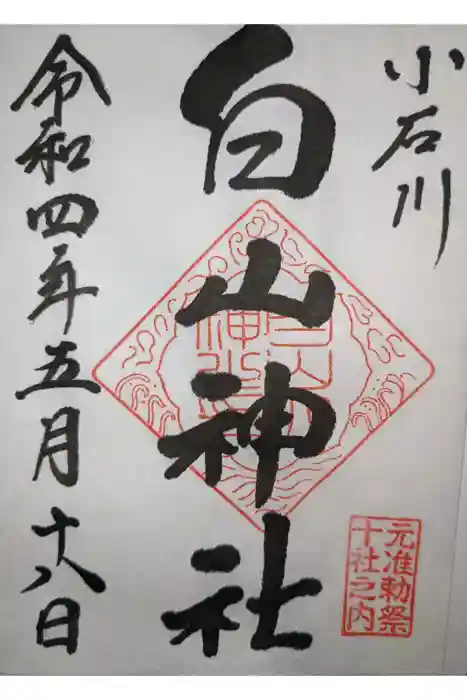 小石川
白山神社
元准勅祭
十社之内
令和四年五月十八日